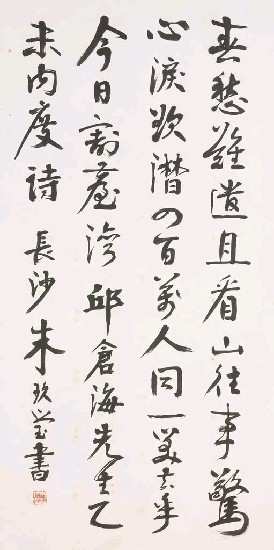 春愁難遣且看山往事驚
心淚欲潸四百萬人同一哭去年
今日割臺灣邱倉海先生乙
未內度詩 長沙朱玖瑩書